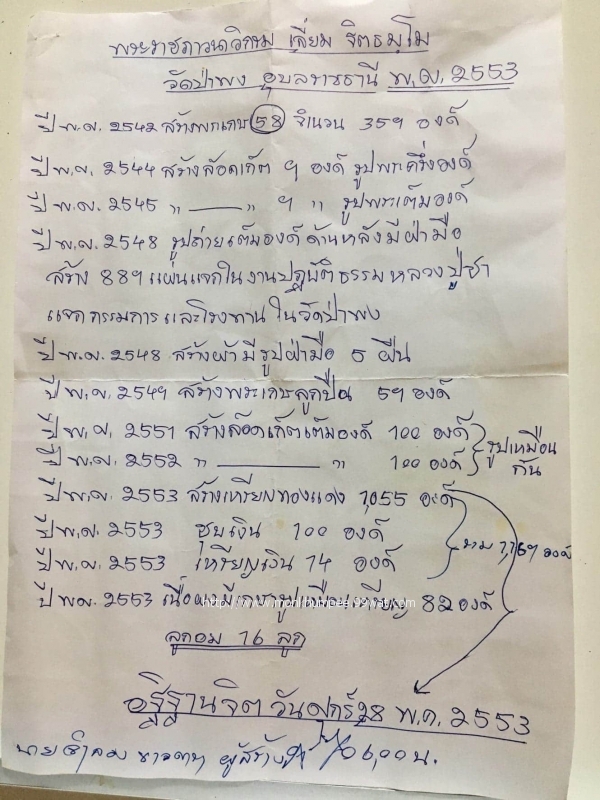 พระราชภาวนาวิกรม เลี่ยม ฐิตธมฺโม
วัดป่าพง อุบลราชธานี พ.ศ. 2553
ปี พ.ศ. 2542 สร้างพระเกษ 58 จำนวน 359 องค์
ปี พ.ศ. 2544 สร้างล๊อคเก็ต 9 องค์ รูปพระครึ่งองค์
ปี พ.ศ. 2545 " — " 9 " รูปพระเต็มองค์
ปี พ.ศ. 2548 รูปถ่ายเต็มองค์ ด้านหลังมีฝ่ามือ
สร้าง 889 แผ่นแจกในงานปฏิบัติธรรม หลวงปู่ชา
แจกกรรมการ และโรงทาน ในวัดป่าพง
ปี พ.ศ. 2548 สร้างผ้ามีรูปฝ่ามือ 5 ผืน
ปี พ.ศ. 2549 สร้างพระเกษลูกปืน 59 องค์
ปี พ.ศ. 2551 สร้างล๊อคเก็ตเต็มองค์ 100 องค์
ปี พ.ศ. 2552 " — " 100 องค์
รูปเหมือนกัน
ปี พ.ศ. 2553 สร้างเหรียญทองแดง 1,055 องค์
ปี พ.ศ. 2553 ชุบเงิน 100 องค์
ปี พ.ศ. 2553 เหรียญเงิน 14 องค์
รวม 1,169 องค์
ปี พ.ศ. 2553 เนื้อผงมีเกษารูปเหมือนเหรียญ 82 องค์
ลูกอม 16 ลูก
อฐิฐานจิต วันศุกร์ 28 พ.ค. 2553
นาย ผู้สร้าง 06,00 น.